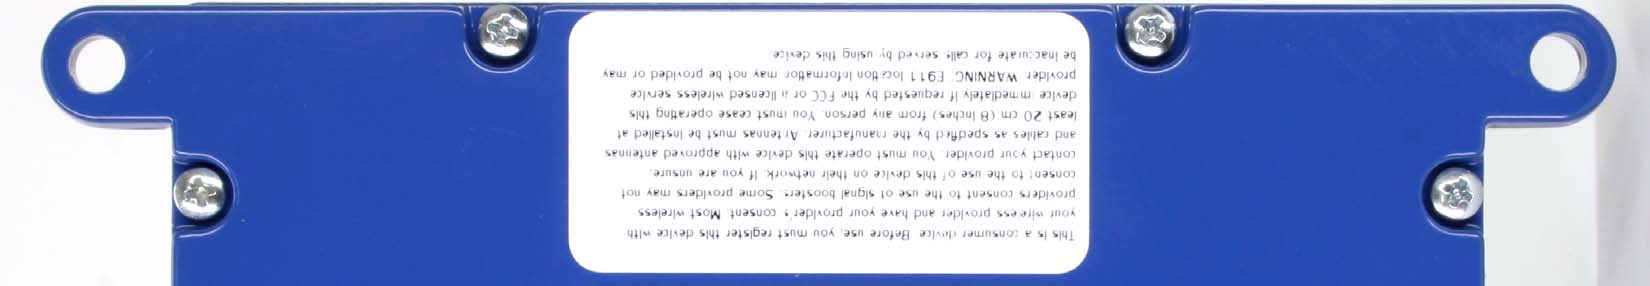 This is a consumer device. Before use, you must register this device with
your wireless provider and have your provider's consent. Most wireless
providers consent to the use of signal boosters. Some providers may not
consent to the use of this device on their network. If you are unsure,
contact your provider. You must operate this device with approved antennas
and cables as specified by the manufacturer. Antennas must be installed at
least 20 cm (8 inches) from any person. You must cease operating this
device immediately if requested by the FCC or a licensed wireless service
provider. WARNING: E911 location information may not be provided or may
be inaccurate for calls served by using this device.